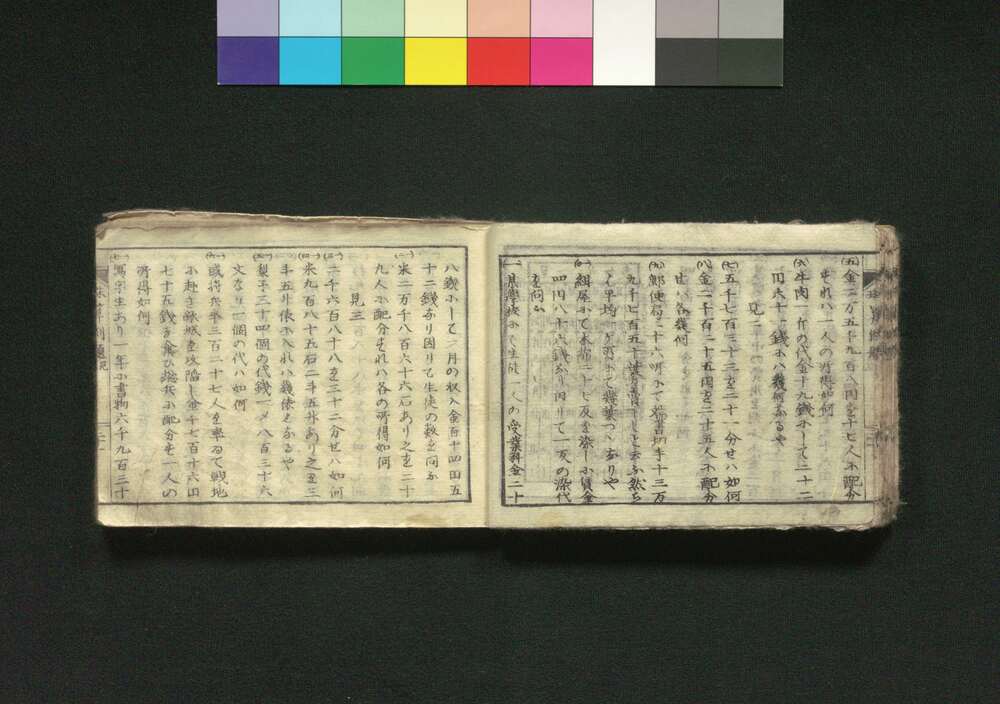 (五)金二万五千九百八円を十七人ニ配分
すれハ一人の所得如何
(六)牛肉一斤の代金十九銭ニして二十二
円六十一銭ニハ幾何なるや
見二
(七)五千七百三十三を二十一分せハ如何
(八)金二千百二十五円を二十五人ニ配分
せハ各幾何
(九)郵便局二十六所ニて
九千七百五十葉
(十)紺屋ニて木綿二十七反を染しニ賃金
四円八十六銭なり因りて一反の染代
を問ふ
(一)ニて生徒一人の受業料金二十
八銭ニして一月の収入金百十四円五
十二銭なり因りて生徒の数を問ふ
(二)米二万千八百六十六石あり之を二十
九人ニ配分すれハ各の所得如何
見三
(三)二千六百八十八を三十二分せハ如何
(四)米九百八十五石二斗五升あり之を三
斗五升俵ニ入れハ幾俵となるや
(五)梨子三十四個の代銭一メ八百三十六
文なり一個の代ハ如何
(六)或将兵卒三百二十七人を率ゐて戦地
ニ赴き敵城を攻陥し金千七百十六円
七十五銭を奪ひ総兵ニ配分す一人の
所得如何
(七)写字生あり一年ニ書物六千九百三十